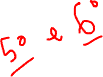 5º e 6º